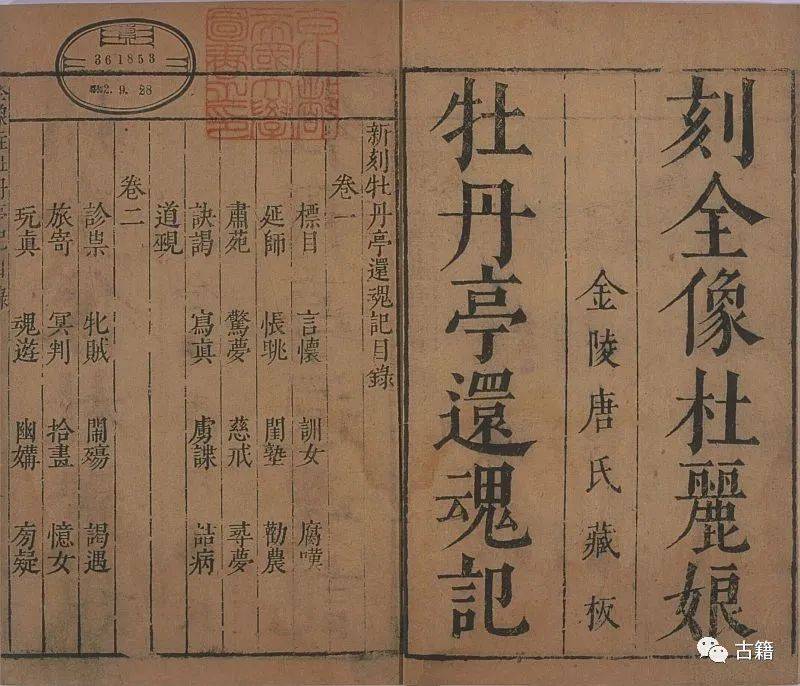 刻全像杜麗娘
金陵唐氏藏板
牡丹亭還魂記
新刻牡丹亭還魂記目錄
卷一
標目 言懷 訓女 腐嘆
延師 悵眺 閨塾 勸農
肅苑 驚夢 慈戒 尋夢
訣謁 寫真 虜諜 詰病
道覡
卷二
診祟 牝賊 鬧殤 謁遇
旅寄 冥判 拾畫 憶女
玩真 魂遊 幽媾 旁疑
361853
2.9.28
古籍